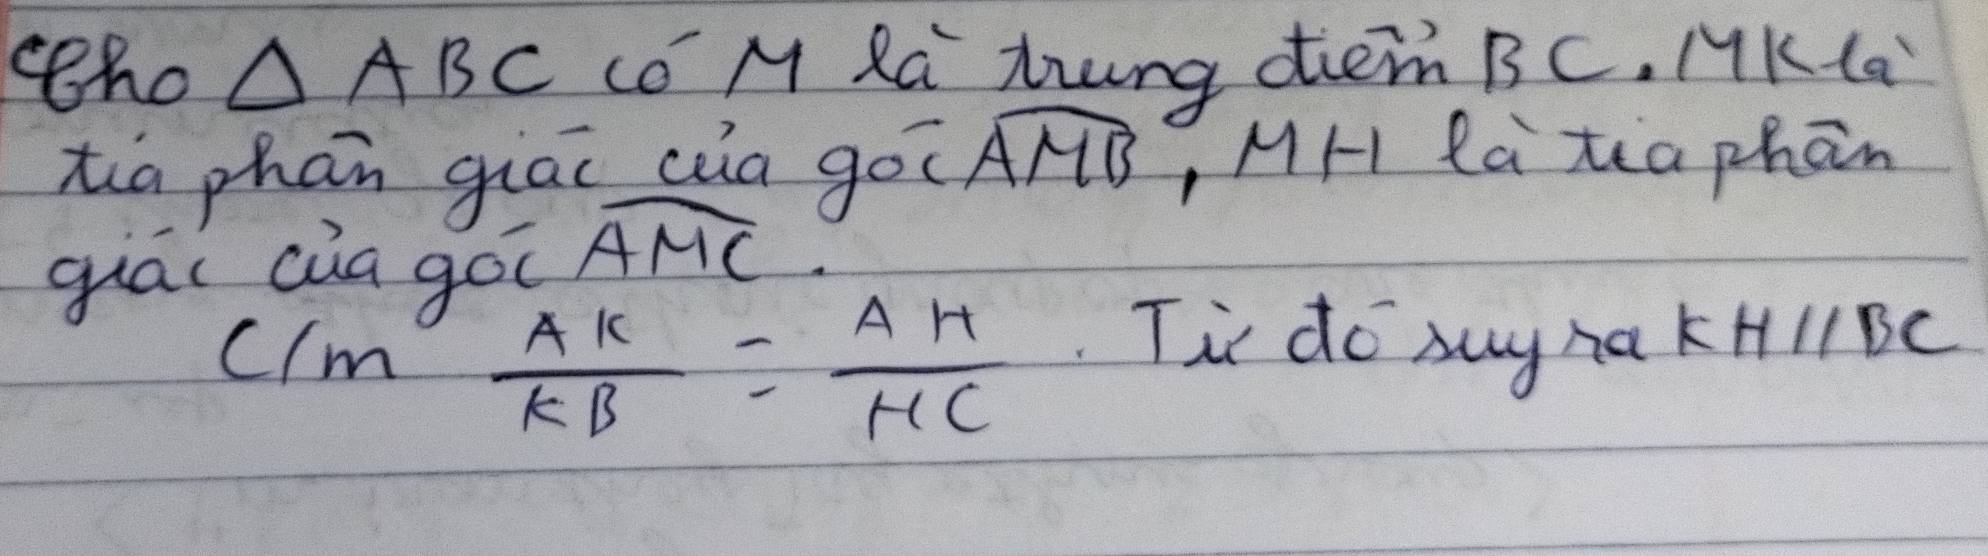 Cho Δ ABC có M là trung điểm BC. MK là
tia phân giác của góc \widehat{AMB}, MH là tia phân
giác của góc \widehat{AMC}.
C/m \frac{AK}{KB} = \frac{AH}{HC}. Từ đó suy ra KH // BC